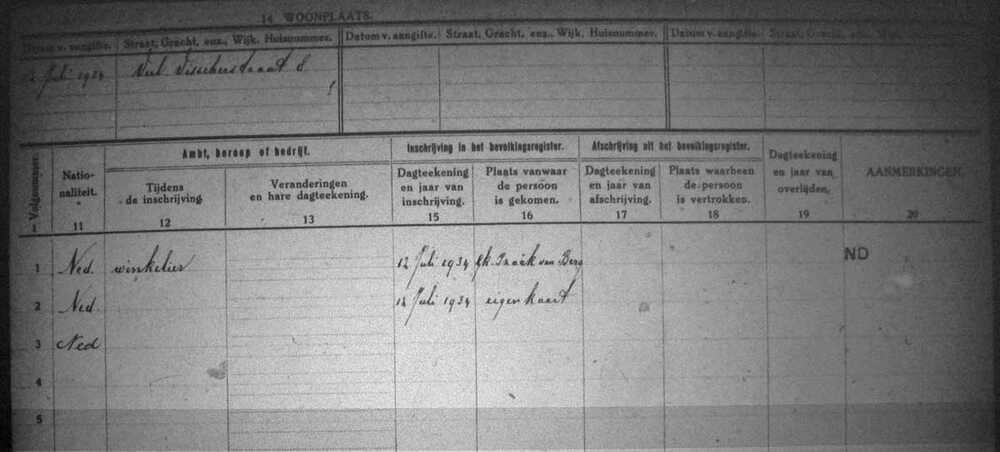 14 WOONPLAATS.
Datum v. aangifte. Straat, Gracht, enz., Wijk. Huisnummer. Datum v. aangifte. Straat, Gracht, enz., Wijk. Huisnummer. Datum v. aangifte. Straat, Gracht, enz., Wijk.
Juli 1934 Visscherstraat 8
Volgnummer. Natio-naliteit. Ambt, beroep of bedrijf. Inschrijving in het bevolkingsregister. Afschrijving uit het bevolkingsregister. Dagteekening en jaar van overlijden. AANMERKINGEN.
Tijdens de inschrijving. Veranderingen en hare dagteekening. Dagteekening en jaar van inschrijving. Plaats vanwaar de persoon is gekomen. Dagteekening en jaar van afschrijving. Plaats waarheen de persoon is vertrokken.
1 11 12 13 15 16 17 18 19 20
1 Ned. winkelier 12 Juli 1934 van Berg ND
2 Ned. 12 Juli 1934 eigen kaart
3 Ned
4
5